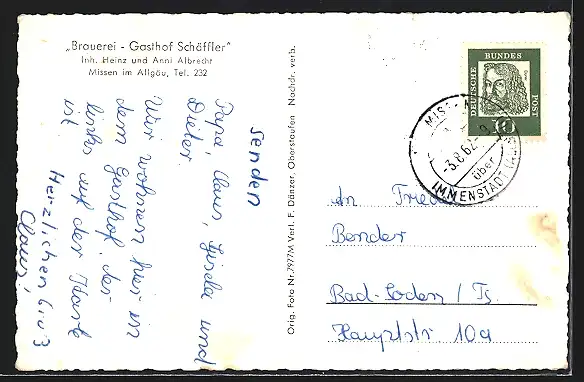 „Brauerei - Gasthof Schäffler"
Inh. Heinz und Anni Albrecht
Missen im Allgäu, Tel. 232
Herzlichen Gruß
Claus!
Wir wohnen hier in
dem Gasthof, der
links auf der Karte
ist.
Papa, Claus, Gisela und
Dieter.
senden
Orig. Foto Nr. 7977M Verl. F. Dänzer, Oberstaufen Nachdr. verb.
DEUTSCHE BUNDES POST
Dürer
10
MISS
-3.8.62
über
IMMENSTADT
An
Bender
Bad-Soden / Ts.
Hauptstr 10a